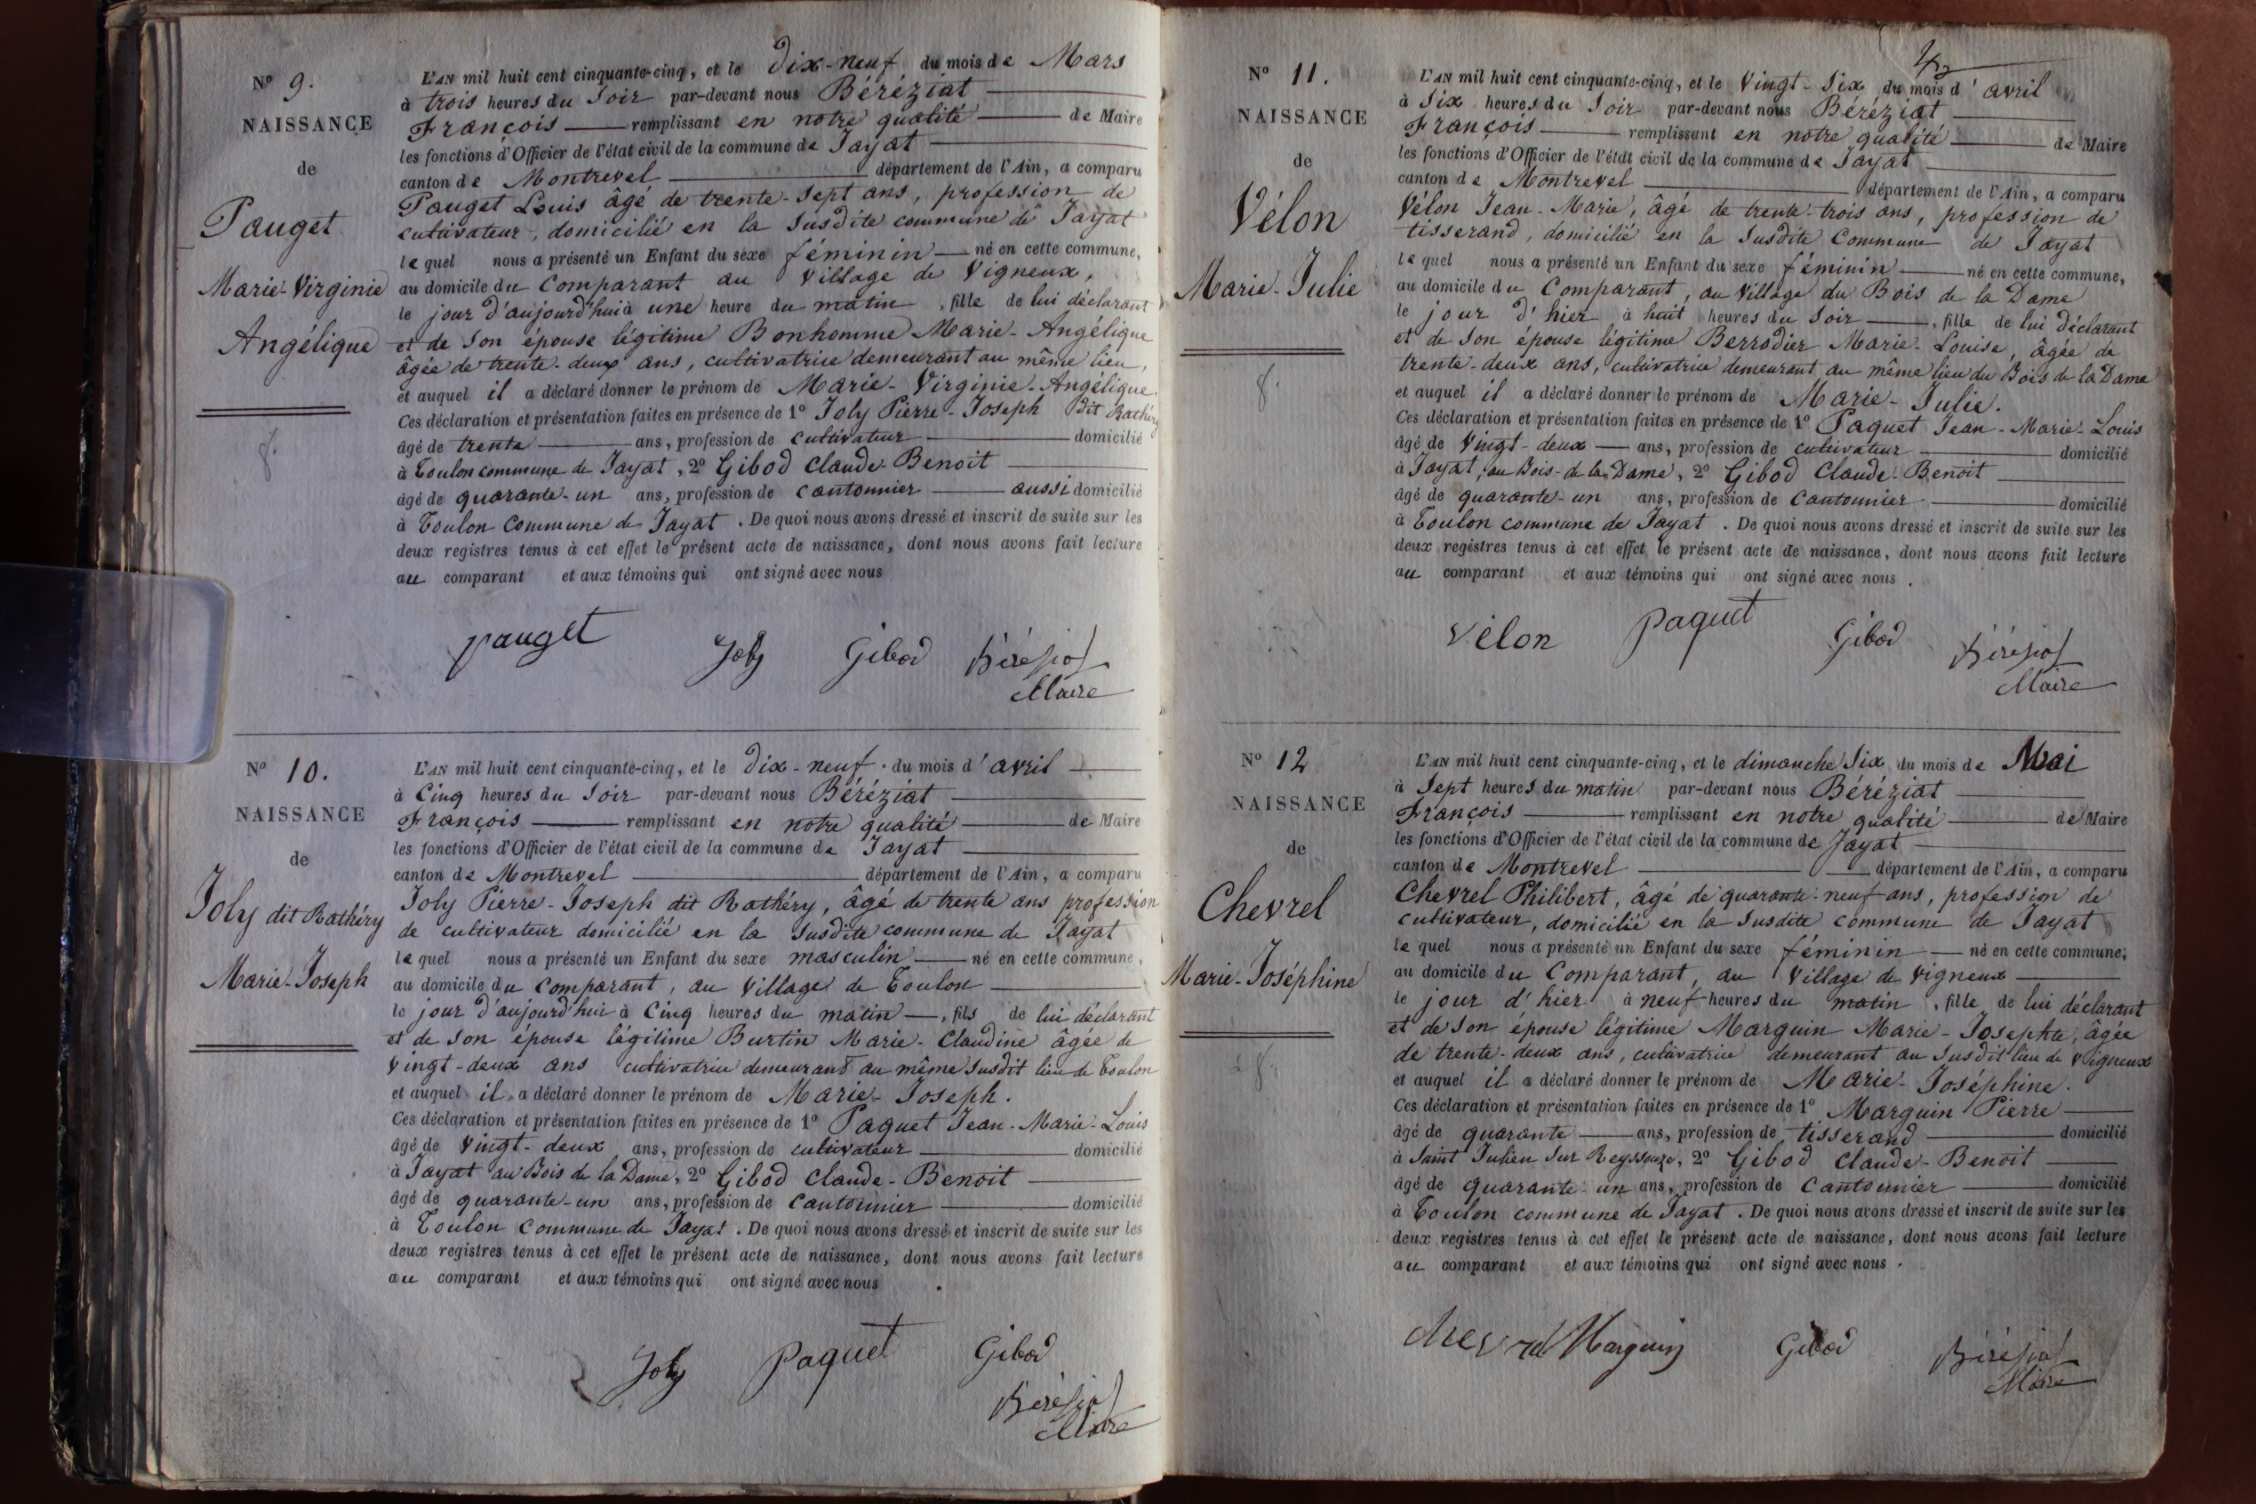 Nº 9.
NAISSANCE
de
Pauget
Marie-Virginie
Angélique
8.
L'AN mil huit cent cinquante-cinq, et le dix-neuf du mois de Mars
à trois heures du Soir par-devant nous Béréziat
François remplissant en notre qualité de Maire
les fonctions d'Officier de l'état civil de la commune de Jayat
canton de Montrevel département de l'Ain, a comparu
Pauget Louis âgé de trente-sept ans, profession de
cultivateur, domicilié en la susdite commune de Jayat
lequel nous a présenté un Enfant du sexe féminin né en cette commune,
au domicile du Comparant au Village de Vigneux,
le jour d'aujourd'hui à une heure du matin, fille de lui déclarant
et de son épouse légitime Bonhomme Marie-Angélique
âgée de trente-deux ans, cultivatrice demeurant au même lieu,
et auquel il a déclaré donner le prénom de Marie-Virginie-Angélique.
Ces déclaration et présentation faites en présence de 1º Joly Pierre-Joseph dit Rathéry
âgé de trente ans, profession de cultivateur domicilié
à Toulon commune de Jayat, 2º Gibod Claude-Benoit
âgé de quarante-un ans, profession de cantonnier aussi domicilié
à Toulon commune de Jayat. De quoi nous avons dressé et inscrit de suite sur les
deux registres tenus à cet effet le présent acte de naissance, dont nous avons fait lecture
au comparant et aux témoins qui ont signé avec nous
pauget Joly Gibod Béréziat
Maire
Nº 10.
NAISSANCE
de
Joly dit Rathéry
Marie-Joseph
L'AN mil huit cent cinquante-cinq, et le dix-neuf. du mois d'avril
à Cinq heures du Soir par-devant nous Béréziat
François remplissant en notre qualité de Maire
les fonctions d'Officier de l'état civil de la commune de Jayat
canton de Montrevel département de l'Ain, a comparu
Joly Pierre-Joseph dit Rathéry, âgé de trente ans profession
de cultivateur domicilié en la susdite commune de Jayat
lequel nous a présenté un Enfant du sexe masculin né en cette commune,
au domicile du comparant, au Village de Toulon
le jour d'aujourd'hui à Cinq heures du matin, fils de lui déclarant
et de son épouse légitime Burtin Marie-Claudine âgée de
vingt-deux ans cultivatrice demeurant au même susdit lieu de Toulon
et auquel il a déclaré donner le prénom de Marie-Joseph.
Ces déclaration et présentation faites en présence de 1º Paquet Jean-Marie-Louis
âgé de vingt-deux ans, profession de cultivateur domicilié
à Jayat au Bois de la Dame, 2º Gibod Claude-Benoit
âgé de quarante-un ans, profession de cantonnier domicilié
à Toulon commune de Jayat. De quoi nous avons dressé et inscrit de suite sur les
deux registres tenus à cet effet le présent acte de naissance, dont nous avons fait lecture
au comparant et aux témoins qui ont signé avec nous.
Joly paquet Gibod
Béréziat
Maire
Nº 11.
NAISSANCE
de
Vélon
Marie-Julie
8.
L'AN mil huit cent cinquante-cinq, et le vingt-six du mois d'avril
à Six heures du Soir par-devant nous Béréziat
François remplissant en notre qualité de Maire
les fonctions d'Officier de l'état civil de la commune de Jayat
canton de Montrevel département de l'Ain, a comparu
Vélon Jean-Marie, âgé de trente-trois ans, profession de
tisserand, domicilié en la susdite commune de Jayat
lequel nous a présenté un Enfant du sexe féminin né en cette commune,
au domicile du Comparant, au Village du Bois de la Dame
le jour d'hier à huit heures du Soir, fille de lui déclarant
et de son épouse légitime Berrodier Marie-Louise, âgée de
trente-deux ans, cultivatrice demeurant au même lieu du Bois de la Dame
et auquel il a déclaré donner le prénom de Marie-Julie.
Ces déclaration et présentation faites en présence de 1º Paquet Jean-Marie-Louis
âgé de vingt-deux ans, profession de cultivateur domicilié
à Jayat, au Bois-de la Dame, 2º Gibod Claude-Benoit
âgé de quarante-un ans, profession de cantonnier domicilié
à Toulon commune de Jayat. De quoi nous avons dressé et inscrit de suite sur les
deux registres tenus à cet effet le présent acte de naissance, dont nous avons fait lecture
au comparant et aux témoins qui ont signé avec nous.
Vélon paquet Gibod Béréziat
Maire
Nº 12
NAISSANCE
de
Chevrel
Marie-Joséphine
8.
L'AN mil huit cent cinquante-cinq, et le dimanche Six du mois de Mai
à Sept heures du matin par-devant nous Béréziat
François remplissant en notre qualité de Maire
les fonctions d'Officier de l'état civil de la commune de Jayat
canton de Montrevel département de l'Ain, a comparu
Chevrel Philibert, âgé de quarante-neuf ans, profession de
cultivateur, domicilié en la susdite commune de Jayat
lequel nous a présenté un Enfant du sexe féminin né en cette commune,
au domicile du Comparant, au Village de Vigneux
le jour d'hier à neuf heures du matin, fille de lui déclarant
et de son épouse légitime Marguin Marie-Josephte, âgée
de trente-deux ans, cultivatrice demeurant au susdit lieu de Vigneux
et auquel il a déclaré donner le prénom de Marie-Joséphine.
Ces déclaration et présentation faites en présence de 1º Marguin Pierre
âgé de quarante ans, profession de tisserand domicilié
à Saint Julien Sur Reyssouze, 2º Gibod Claude-Benoit
âgé de quarante-un ans, profession de cantonnier domicilié
à Toulon commune de Jayat. De quoi nous avons dressé et inscrit de suite sur les
deux registres tenus à cet effet le présent acte de naissance, dont nous avons fait lecture
au comparant et aux témoins qui ont signé avec nous.
Chevrel Marguin Gibod Béréziat
Maire